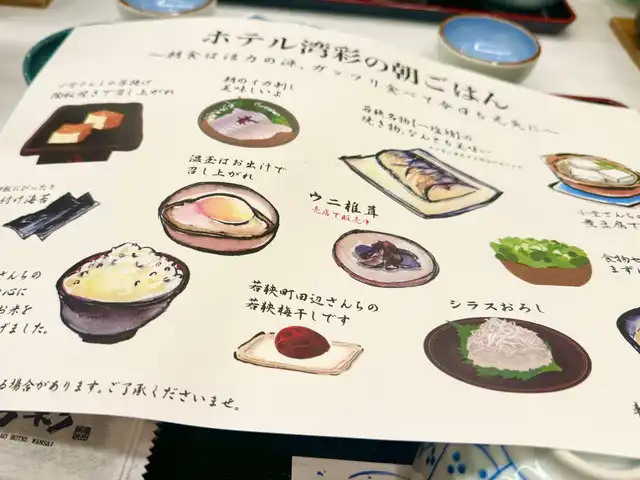 ホテル湾彩の朝ごはん
―朝食は活力の源、ガッツリ食べて今日も元気に―
の厚揚げ
陶板焼きで召し上がれ
朝のイカ刺し
美味しいよ
若狭名物【一塩鯖】の
焼き物、なんとも美味い
温玉はお出汁で
召し上がれ
ウニ椎茸
売店で販売中
ご飯にぴったり
味付け海苔
煮豆腐で
食物せ
ます
さんちの
心に
お米を
げました。
若狭町田辺さんちの
若狭梅干しです
シラスおろし
る場合があります。ご了承くださいませ。
AO HOTEL WANSAI